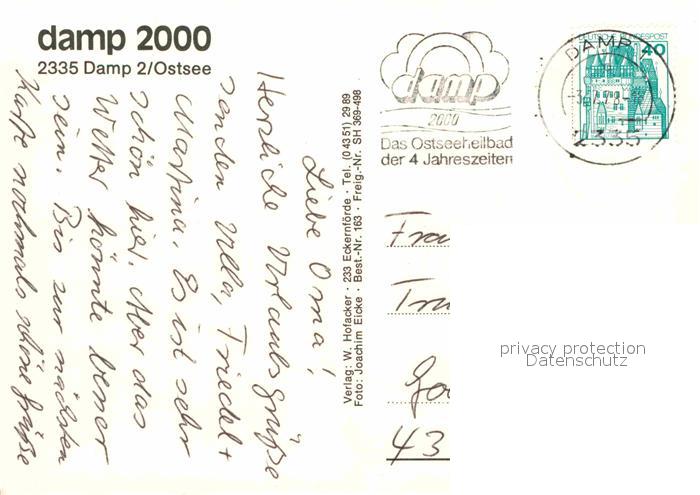 damp 2000
2335 Damp 2/Ostsee
Liebe Oma!
Herzliche Urlaubsgrüße
senden Ulla, Friedel +
Martina. Es ist sehr
schön hier. Aber das
Wetter könnte besser
sein. Bis zur nächsten
Kaffe nochmals schöne Grüße
Verlag: W. Hofacker · 233 Eckernförde · Tel. (0 43 51) 29 89
Foto: Joachim Eicke · Best.-Nr. 163 · Freig.-Nr. SH 369-498
damp
2000
Das Ostseeheilbad
der 4 Jahreszeiten
DEUTSCHE BUNDESPOST
40
DAMP
2335
Fra
43
privacy protection
Datenschutz